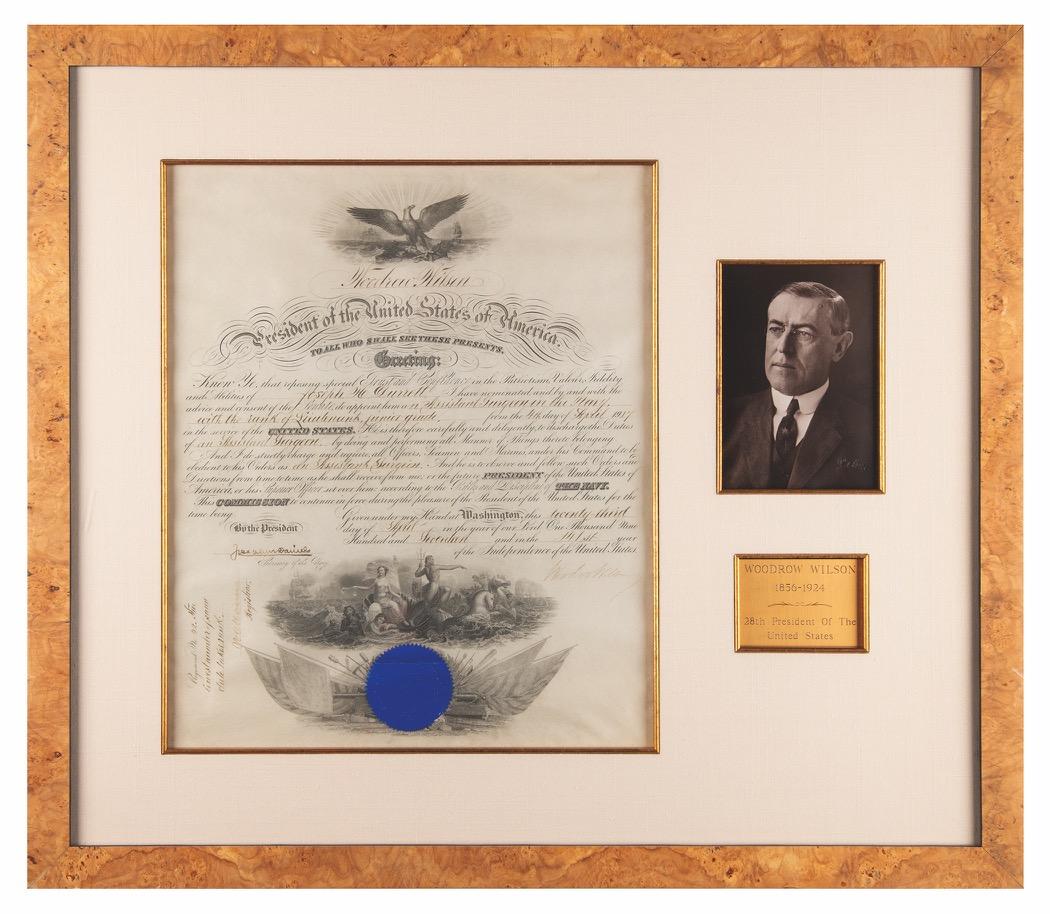 Woodrow Wilson
President of the United States of America.
TO ALL WHO SHALL SEE THESE PRESENTS,
Greeting:
Know Ye, that reposing special Trust and Confidence in the Patriotism, Valour, Fidelity
and Abilities of Joseph H. I have nominated and by and with the
advice and consent of the Senate, do appoint him an Assistant Surgeon in the Navy,
with the rank of Lieutenant, junior grade, from the 4th day of April 1917
in the service of the UNITED STATES. He is therefore carefully and diligently to discharge the Duties
of an Assistant Surgeon by doing and performing all Manner of Things thereto belonging
And I do strictly charge and require all Officers, Seamen and Marines, under his Command to be
obedient to his Orders as an Assistant Surgeon. And he is to observe and follow such Orders and
Directions from time to time as he shall receive from me, or the future PRESIDENT of the United States of
America, or his Superior Officer set over him, according to the Rules and Discipline of THE NAVY.
This COMMISSION to continue in force during the pleasure of the President of the United States for the
time being
Given under my Hand at Washington, this twenty-third
By the President
day of April in the year of our Lord One Thousand Nine
Hundred and Seventeen and in the 141st year
of the Independence of the United States.
Josephus Daniels
Secretary of the Navy.
Woodrow Wilson
Registrar,
WOODROW WILSON
1856-1924
28th President Of The
United States